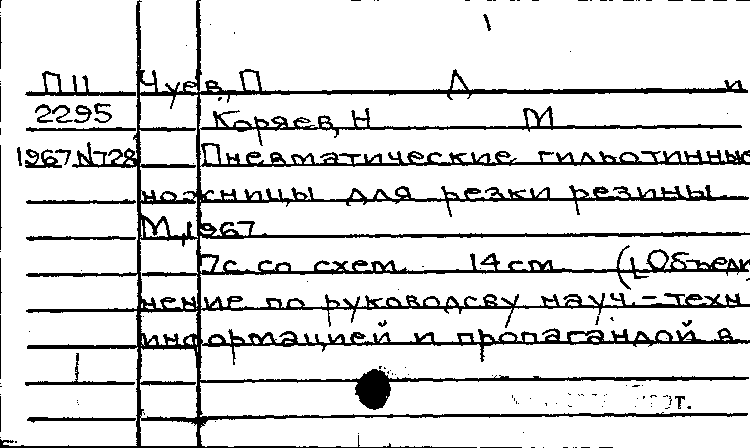 ПII Чуев, П Д и
2295 Коряев, Н М
1967 N728 Пневматические гильотинные
ножницы для резки резины
М, 1967
7с. со схем. 14 см ([Объеди
нение по руководсву науч.-техн
информацией и пропагандой в